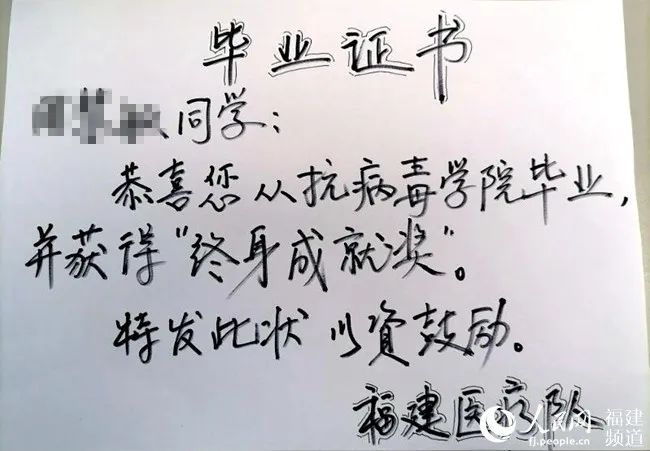 毕业证书
同学：
恭喜您从抗病毒学院毕业，
并获得“终身成就奖”。
特发此状 以资鼓励。
福建医疗队
人民网 福建频道
fj.people.cn